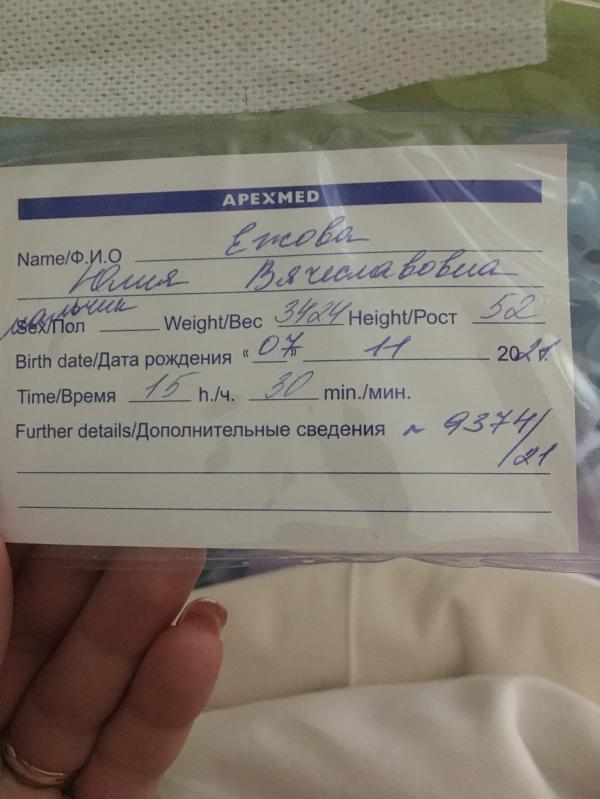 APEXMED
Name/Ф.И.О Ежова
Юлия Вячеславовна
мальчик
Sex/Пол Weight/Вес 3424 Height/Рост 52
Birth date/Дата рождения « 07 » 11 2021г.
Time/Время 15 h./ч. 30 min./мин.
Further details/Дополнительные сведения ~ 9374/
/21